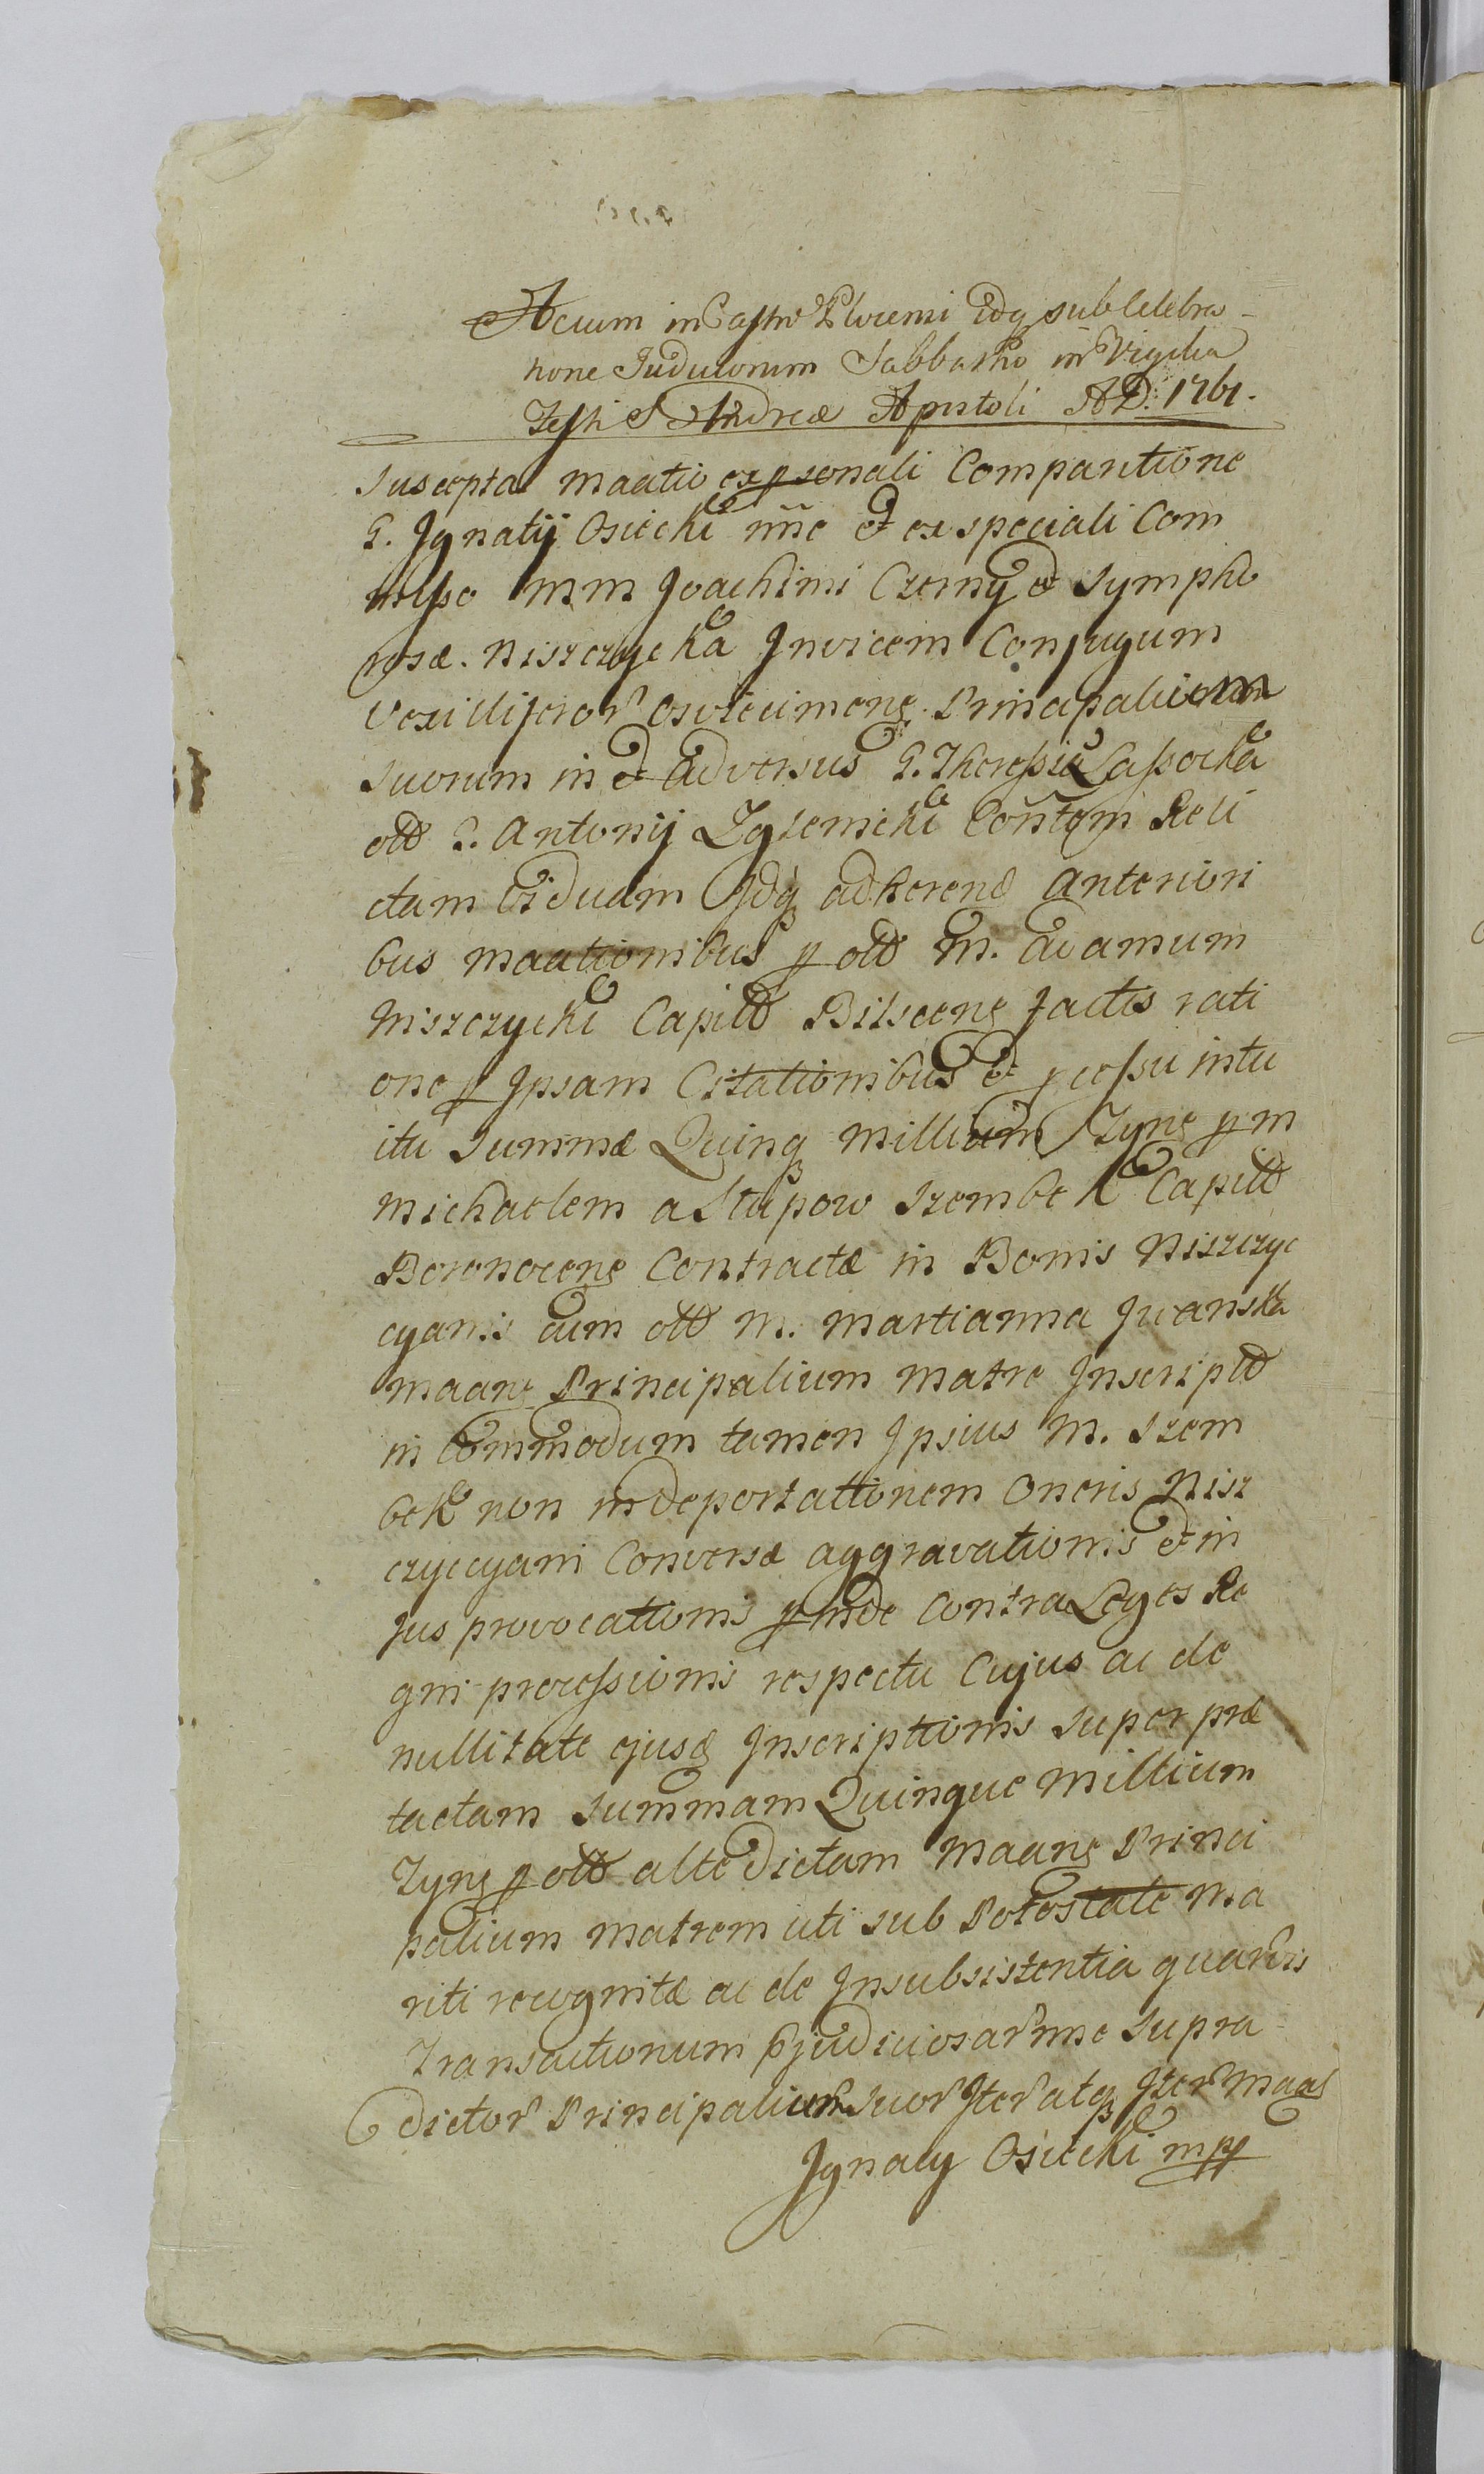 Actum in Castro Plocensi Idq sub Celebra-
tione Judiciorum Sabbatho in Vigilia
Festi S Andreæ Apostoli AD. 1761.
Suscepta maatio ex psonali Comparitione
G. Ignatij Osiecki nne et ex speciali Com
misso MM Joachimi Czerny et Sympho
rosæ. Niszczycka Invicem Conjugum
Vexilliferor Osviecimens. Principalium
Suorum in et adversus G. Theressia Lassocka
ott G. Antonij Zglenicki Contem Reli
ctam Viduam Idq adherend anteriori
bus maationibus p ott M. Adamum
Niszczycki Capitt Bilscens factis rati
one p Ipsam Citationibus et pcessu intu
itu Summæ Quinq Millium Tyns p M
Michaelem a Slupow Szembek Capitt
Boronocens Contractæ in Bonis Niszczyc
cyanis cum ott M. Martianna Iwanska
Maans Principalium Matre Inscriptt
in Commodum tamen Ipsius M. Szem
bek non in deportationem Oneris Nisz
czyccyani Conversæ aggravationis et in
Jus provocationis p inde Contra Leges Re
gni processionis respectu Cujus ac de
nullitate ejusd Inscriptionis super præ
tactam Summam Quinque Millium
Tyns p ott alte Dictam Maans Princi
palium Matrem uti sub Potestate Ma
riti recognitæ ac de Insubsistentia quarvis
Transactionum pjudiciosar nne Supra
dictor Principalium Suor Iter atq Iter maat
Ignacy Osiecki mpp